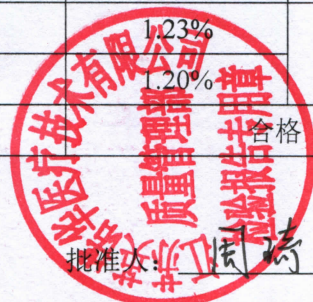 1.23%
1.20%
合格
医疗技术有限公司
质量管理部
检验报告专用章
批准人：周琦